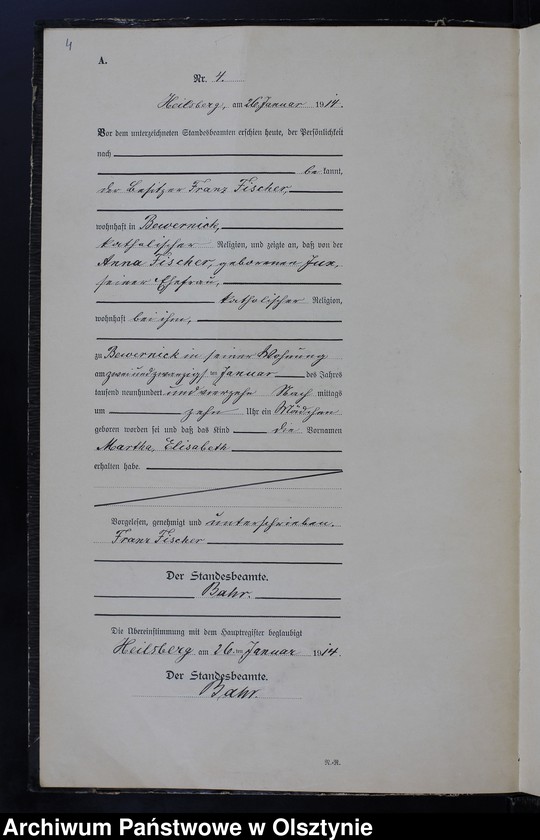 4
A.
Nr. 4.
Heilsberg, am 26 Januar 1914.
Vor dem unterzeichneten Standesbeamten erschien heute, der Persönlichkeit
nach
be kannt,
der Besitzer Franz Fischer,
wohnhaft in Bewernick,
katholischer Religion, und zeigte an, daß von der
Anna Fischer, geborenen Jux,
seiner Ehefrau,
katholischer Religion,
wohnhaft bei ihm,
zu Bewernick in seiner Wohnung
am zweiundzwanzigsten Januar des Jahres
tausend neunhundert und vierzehn Nach mittags
um zehn Uhr ein Mädchen
geboren worden sei und daß das Kind die Vornamen
Martha, Elisabeth
erhalten habe.
Vorgelesen, genehmigt und unterschrieben.
Franz Fischer
Der Standesbeamte.
Bahr.
Die Übereinstimmung mit dem Hauptregister beglaubigt
Heilsberg am 26 ten Januar 1914.
Der Standesbeamte.
Bahr.
N.-R.
Archiwum Państwowe w Olsztynie